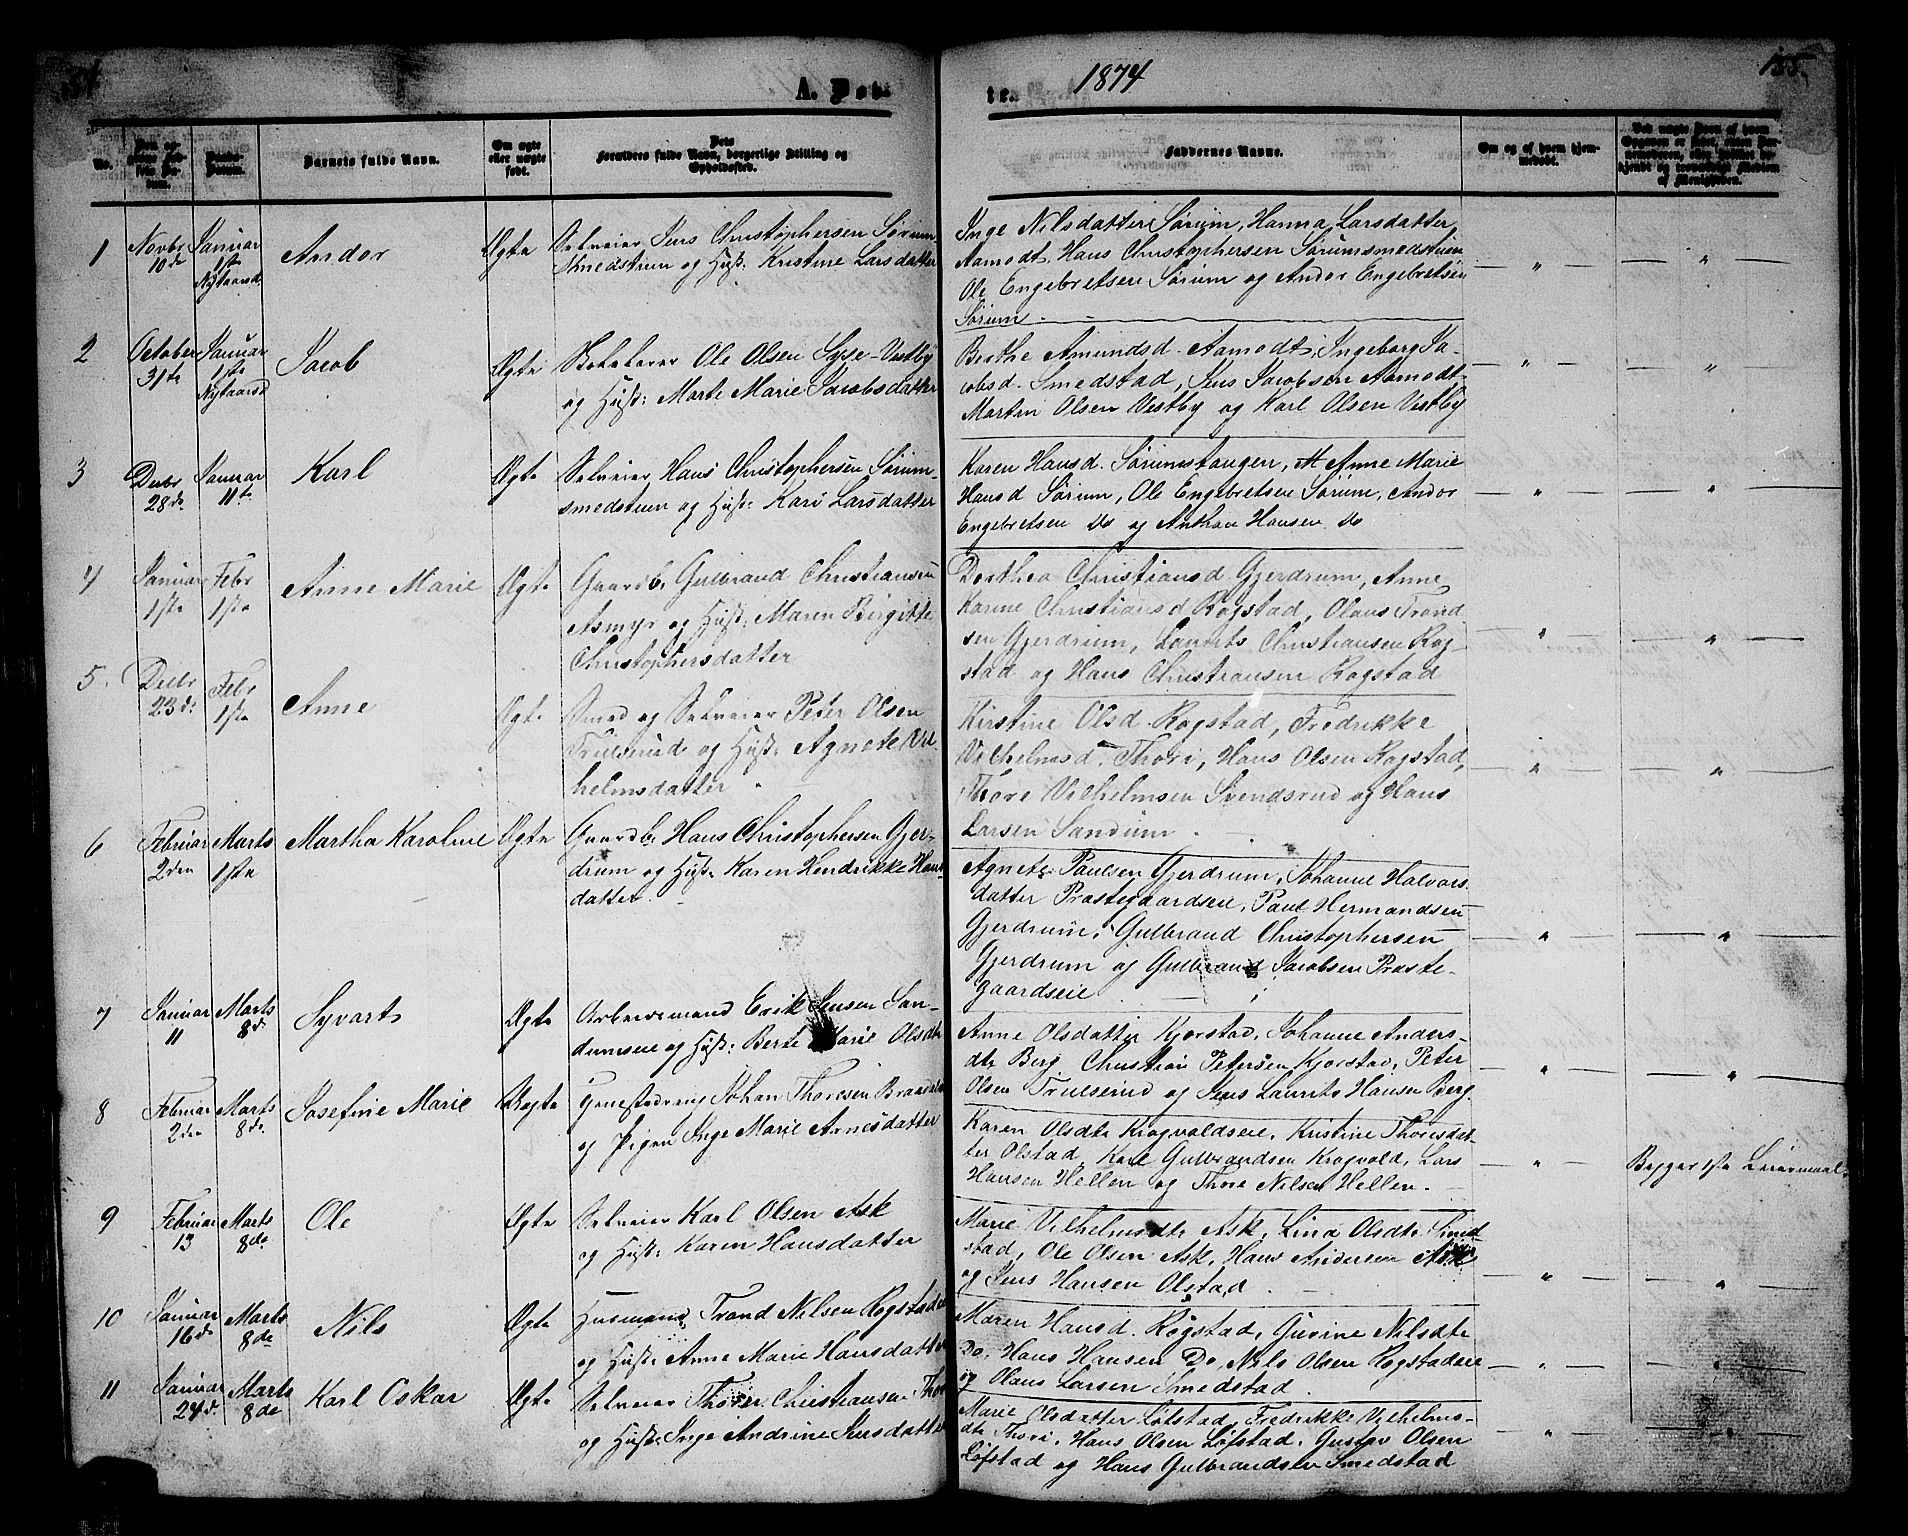 154
A. Døb
te.
1874
155.
No.
Barnets fulde Navn.
Om ægte
eller uægte
født.
Forældres fulde Navn, borgerlige Stilling og
Opholdssted.
Faddernes Navne.
Om og af hvem hjem-
medøbt.
1
Novbr
10de
Januar
1ste
Nytaarsd
Andor
Ægte
Selveier Jens Christophersen Sørum
Smedstuen og Hust: Kristine Larsdatter
Inge Nilsdatter Sørum, Hanna Larsdatter
Aamodt, Hans Christophersen Sørumsmedstuen
Ole Engebretsen Sørum og Andor Engebretsen
Sørum
2
October
31te
Januar
1ste
Nytaarsd
Jacob
Ægte
Ole Olsen Vestby
og Hust: Marte Marie Jacobsdatter
Berthe Amundsd. Aamodt, Ingeborg Ja-
cobsd. Smedstad, Jens Jacobsen Aamodt
Martin Olsen Vestby og Karl Olsen Vestby
3
Decbr
28de
Januar
11te
Karl
Ægte
Selveier Hans Christophersen Sørum-
smedstuen og Hust: Kari Larsdatter
Karen Hansd. Sørumstangen, Anne Marie
Hansd Sørum, Ole Engebretsen Sørum, Andor
Engebretsen Do og Anthon Hansen Do
4
Januar
1ste
Febr
1ste
Anne Marie
Ægte
Gaardb. Gulbrand Christiansen
Asmyr og Hust: Maren Birgitte
Christophersdatter
Dorthea Christiansd Gjerdrum, Anne
Karine Christiansd Rogstad, Olaus Trond
sen Gjerdrum, Laurits Christiansen Rog-
stad og Hans Christiansen Rogstad
5.
Decbr
23de
Febr
1ste
Anne
Ægte
Smed og Selveier Peter Olsen
Trulserud og Hust: Agnete Vil-
helmsdatter
Kirstine Olsd. Rogstad, Fredrikke
Vilhelmsd. Thori, Hans Olsen Rogstad,
Thore Vilhelmsen Svendsrud og Hans
Larsen Sandum.
6
Februar
2den
Marts
1ste
Martha Karoline
Ægte
Gaardb. Hans Christophersen Gjer-
drum og Hust: Karen Hendrikke Hans-
datter.
Agnete Paulsen Gjerdrum, Johanne Halvors-
datter Præstegaardseie, Paul Hermandsen
Gjerdrum, Gulbrand Christophersen
Gjerdrum og Gulbrand Jacobsen Præste-
gaardseie
7
Januar
11
Marts
8de
Syvart
Ægte
Arbeidsmand Erik Jensen San-
dumseie og Hust: Berte Marie Olsdt
Anne Olsdatter Kjorstad, Johanne Anders-
dtr Berg, Christian Petersen Kjorstad, Peter
Olsen Trulserud og Jens Laurits Hansen Berg.
8
Februar
2den
Marts
8de
Josefine Marie
Uægte
Tjenestedreng Johan Thoresen
og Pigen Inge Marie Arnesdatter
Karen Olsdtr Krogvoldseie, Kristine Thoresdat-
ter Olstad, Karl Gulbrandsen Krogvold, Lars
Hansen Hellen og Thore Nilsen Hellen.
Begges 1ste Leiermaal
9
Februar
13
Marts
8de
Ole
Ægte
Selveier Karl Olsen Ask
og Hust: Karen Hansdatter
Marie Vilhelmsdtr Ask, Lina Olsdtr Smed-
stad, Ole Olsen Ask, Hans Andersen Ask
og Jens Hansen Olstad
10
Januar
16de
Marts
8de
Nils
Ægte
Husmand Trond Nilsen Rogstadeie
og Hust: Anne Marie Hansdatter
Maren Hansd. Rogstad, Gurine Nilsdtr
Do, Hans Hansen Do, Nils Olsen Rogstadeie
og Olaus Larsen Smedstad.
11
Januar
24de
Marts
8de
Karl Oskar
Ægte
Selveier Thorer Christiansen Thori
og Hust: Inge Andrine Jensdatter
Marie Olsdatter Løfstad, Fredrikke Vilhelms-
dtr Thori, Hans Olsen Løfstad, Gustav Olsen
Løfstad og Hans Gulbrandsen Smedstad